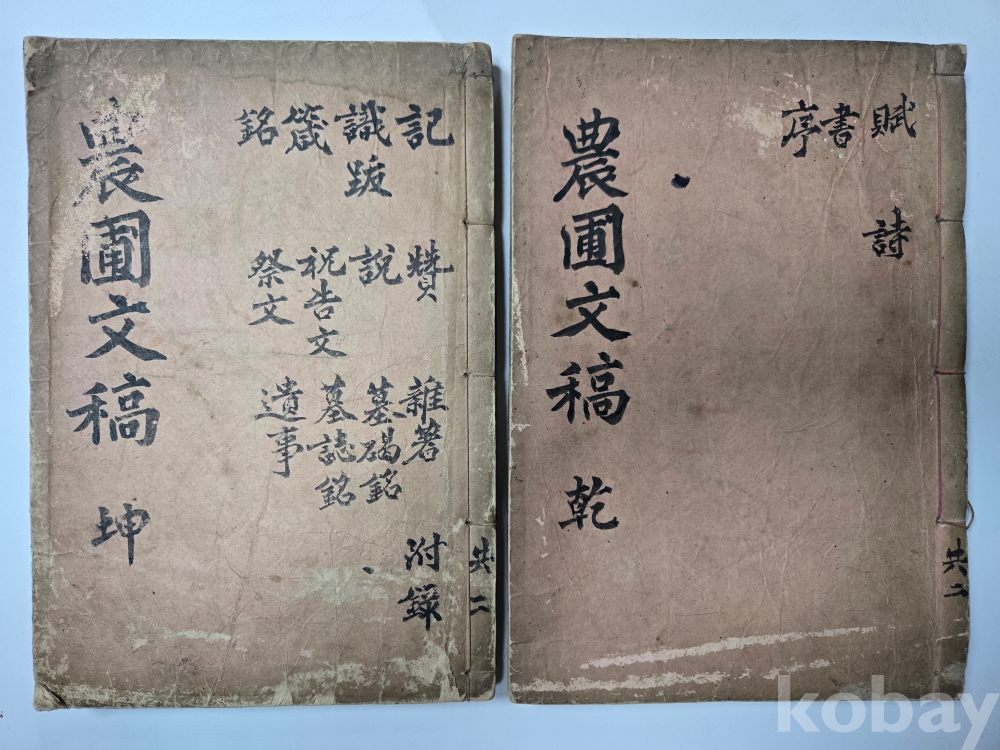 賦 詩
書
序
農圃文稿 乾
共二
記 贊 雜著 附錄
識跋 說 墓碣銘
箴 祝告文 墓誌銘
銘 祭文 遺事
農圃文稿 坤
共二
kobay